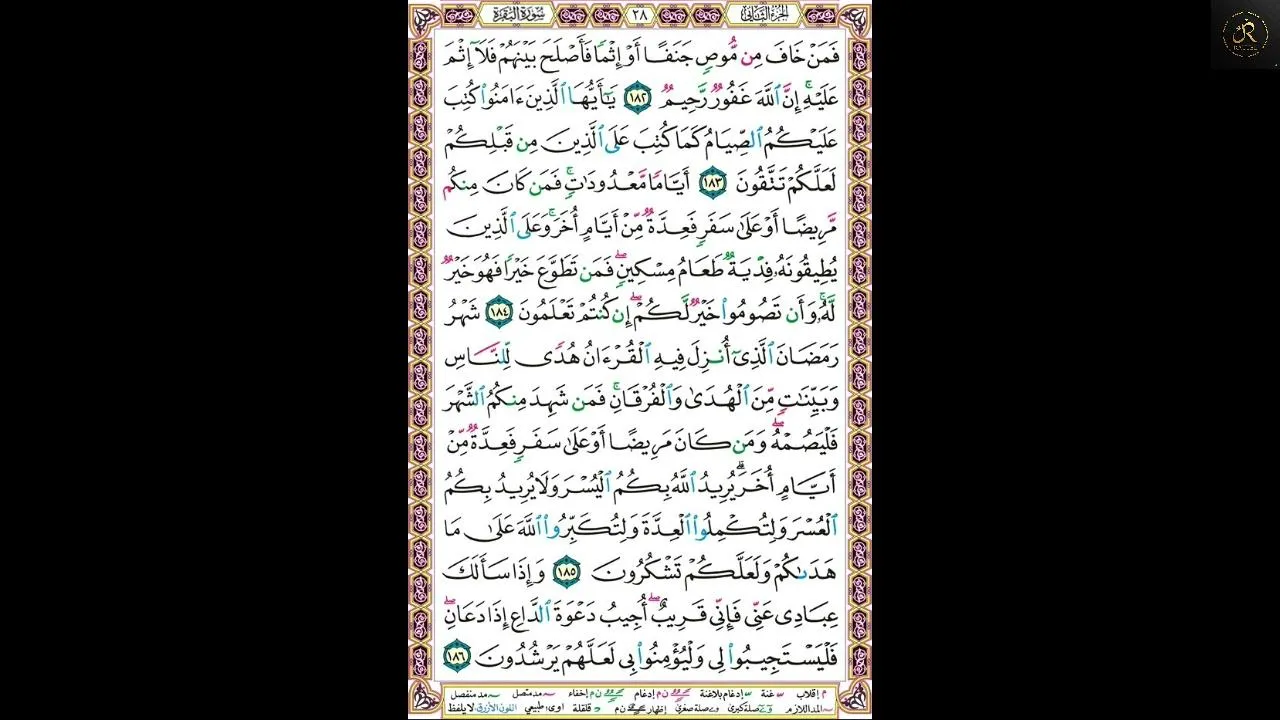 الجزء الثاني ٢٨ سورة البقرة
فَمَنْ خَافَ مِن مُّوصٍ جَنَفًا أَوْ إِثْمًا فَأَصْلَحَ بَيْنَهُمْ فَلَآ إِثْمَ
عَلَيْهِ ۚ إِنَّ ٱللَّهَ غَفُورٌ رَّحِيمٌ ١٨٢ يَـٰٓأَيُّهَا ٱلَّذِينَ ءَامَنُوا۟ كُتِبَ
عَلَيْكُمُ ٱلصِّيَامُ كَمَا كُتِبَ عَلَى ٱلَّذِينَ مِن قَبْلِكُمْ
لَعَلَّكُمْ تَتَّقُونَ ١٨٣ أَيَّامًا مَّعْدُودَٰتٍ ۚ فَمَن كَانَ مِنكُم
مَّرِيضًا أَوْ عَلَىٰ سَفَرٍ فَعِدَّةٌ مِّنْ أَيَّامٍ أُخَرَ ۚ وَعَلَى ٱلَّذِينَ
يُطِيقُونَهُۥ فِدْيَةٌ طَعَامُ مِسْكِينٍ ۖ فَمَن تَطَوَّعَ خَيْرًا فَهُوَ خَيْرٌ
لَّهُۥ ۚ وَأَن تَصُومُوا۟ خَيْرٌ لَّكُمْ ۖ إِن كُنتُمْ تَعْلَمُونَ ١٨٤ شَهْرُ
رَمَضَانَ ٱلَّذِىٓ أُنزِلَ فِيهِ ٱلْقُرْءَانُ هُدًى لِّلنَّاسِ
وَبَيِّنَـٰتٍ مِّنَ ٱلْهُدَىٰ وَٱلْفُرْقَانِ ۚ فَمَن شَهِدَ مِنكُمُ ٱلشَّهْرَ
فَلْيَصُمْهُ ۖ وَمَن كَانَ مَرِيضًا أَوْ عَلَىٰ سَفَرٍ فَعِدَّةٌ مِّنْ
أَيَّامٍ أُخَرَ ۗ يُرِيدُ ٱللَّهُ بِكُمُ ٱلْيُسْرَ وَلَا يُرِيدُ بِكُمُ
ٱلْعُسْرَ وَلِتُكْمِلُوا۟ ٱلْعِدَّةَ وَلِتُكَبِّرُوا۟ ٱللَّهَ عَلَىٰ مَا
هَدَىٰكُمْ وَلَعَلَّكُمْ تَشْكُرُونَ ١٨٥ وَإِذَا سَأَلَكَ
عِبَادِى عَنِّى فَإِنِّى قَرِيبٌ ۖ أُجِيبُ دَعْوَةَ ٱلدَّاعِ إِذَا دَعَانِ ۖ
فَلْيَسْتَجِيبُوا۟ لِى وَلْيُؤْمِنُوا۟ بِى لَعَلَّهُمْ يَرْشُدُونَ ١٨٦
م إقلاب غنة إدغام بلا غنة ن م إدغام ن م إخفاء مد متصل مد منفصل
المد اللازم صلة كبرى صلة صغرى إظهار ن م قلقلة اوى: طبيعي اللون الأزرق لا يلفظ